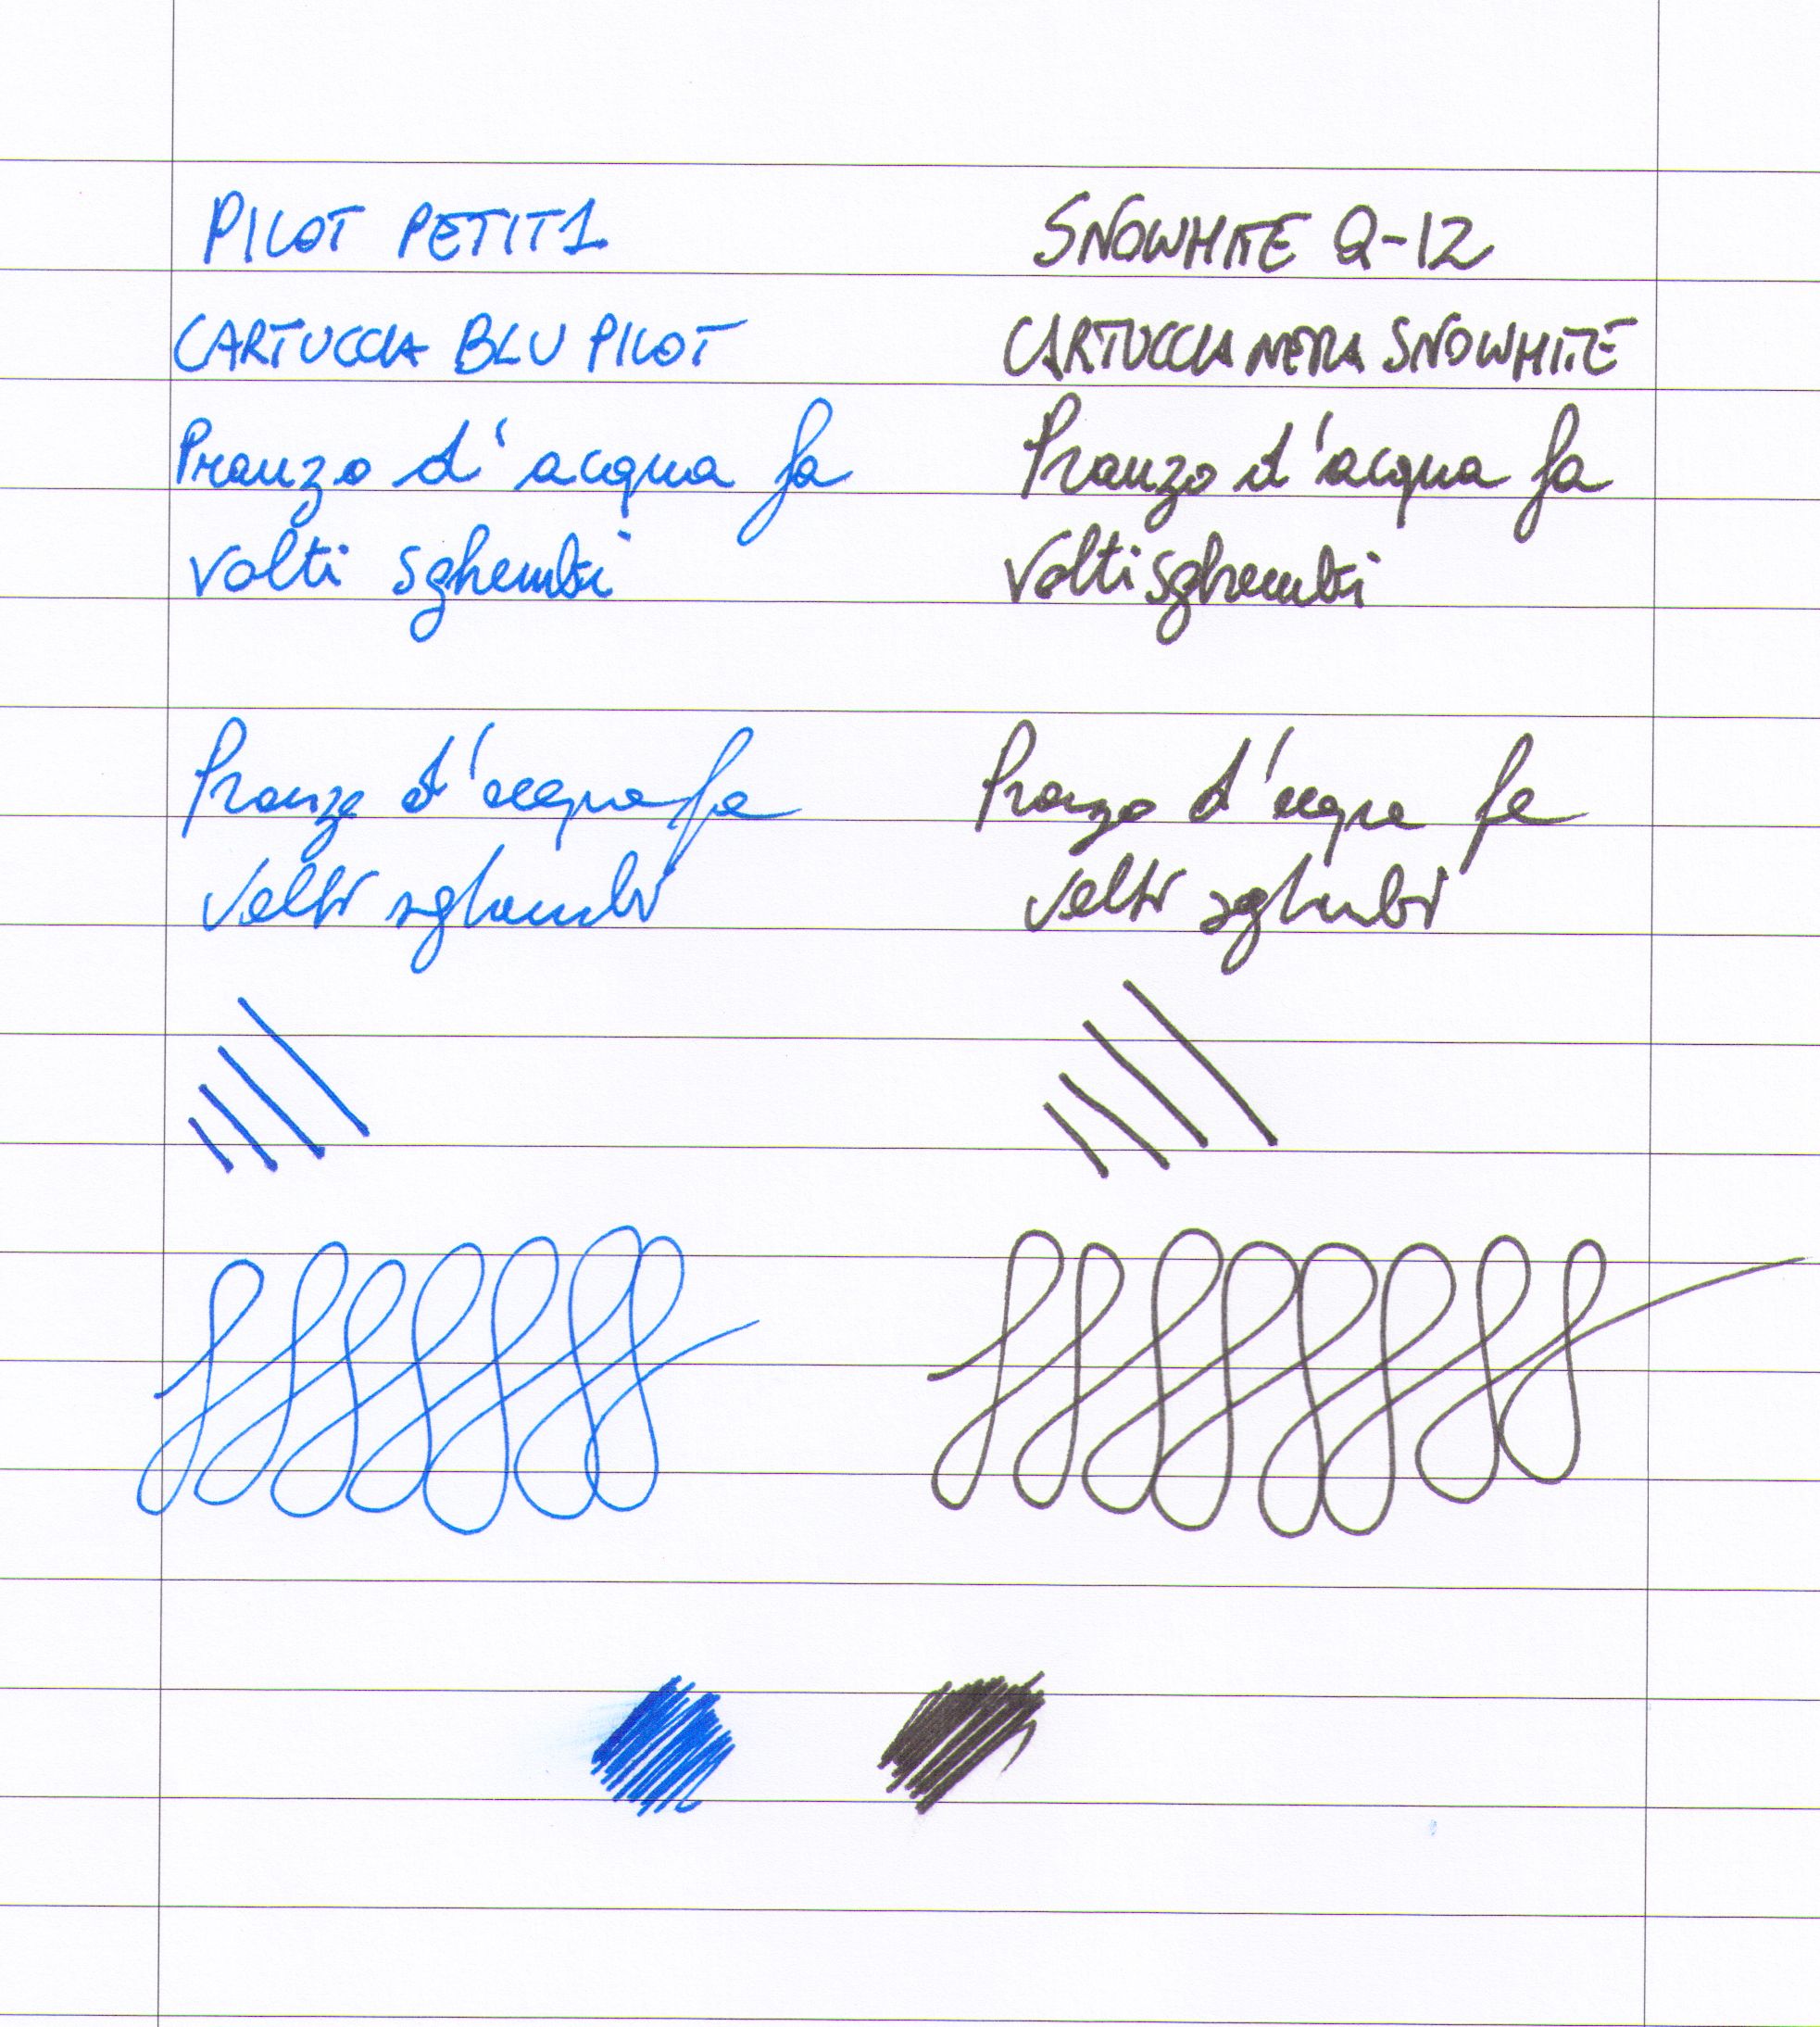 PILOT PETIT1
CARTUCCIA BLU PILOT
Pranzo d'acqua fa
volti sghembi
Pranzo d'acqua fa
volti sghembi
SNOWHITE Q-12
CARTUCCIA NERA SNOWHITE
Pranzo d'acqua fa
volti sghembi
Pranzo d'acqua fa
volti sghembi